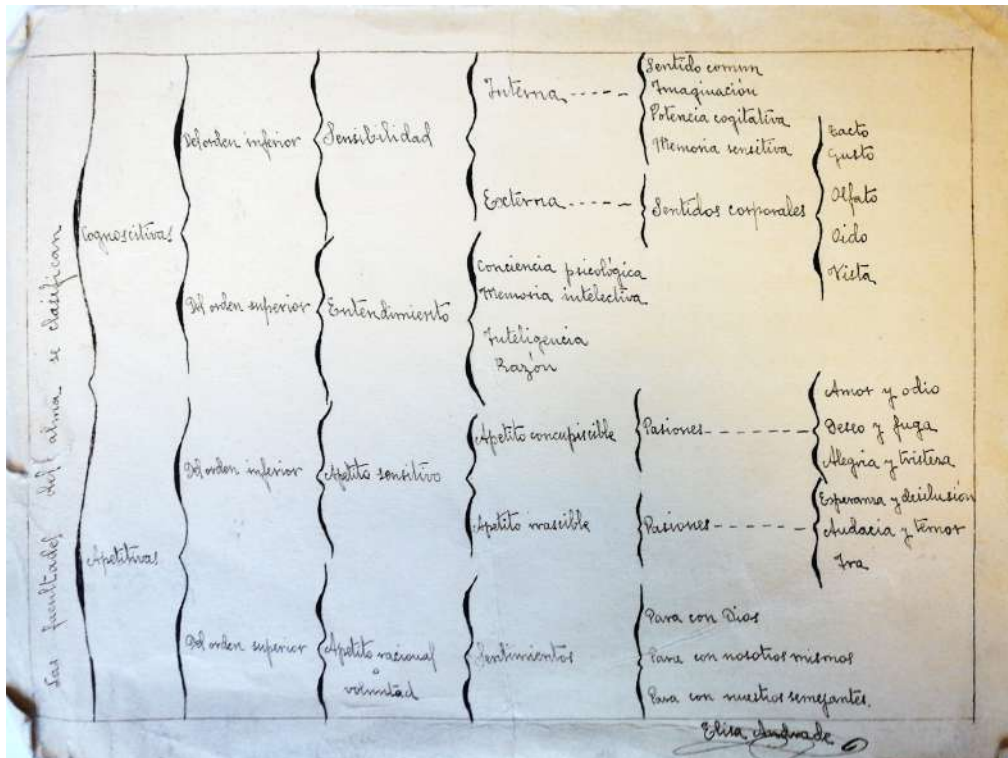 Las facultades del alma se clasifican
Cognoscitivas
Del orden inferior
Sensibilidad
Interna -----
Sentido comun
Imaginación
Potencia cogitativa
Memoria sensitiva
Externa -----
Sentidos corporales
Tacto
Gusto
Olfato
Oido
Vista
Del orden superior
Entendimiento
Conciencia psicológica
Memoria intelectiva
Inteligencia
Razón
Apetitivas
Del orden inferior
Apetito sensitivo
Apetito concupiscible
Pasiones
Amor y odio
Deseo y fuga
Alegria y tristeza
Apetito irascible
Pasiones
Esperanza y desilusión
Audacia y temor
Ira
Del orden superior
Apetito racional
o
voluntad
Sentimientos
Para con Dios
Para con nosotros mismos
Para con nuestros semejantes.
Elisa Andrade